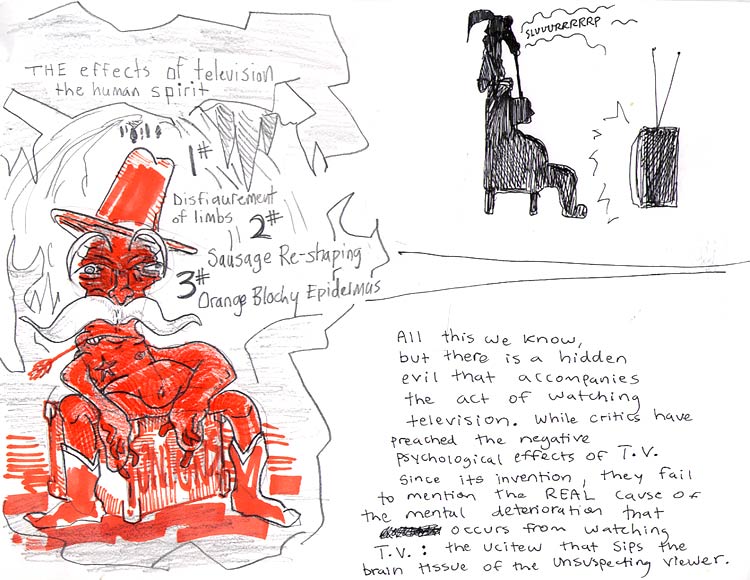 THE effects of television
the human spirit
1#
Disfigurement
of limbs 2#
Sausage Re-shaping
3#
Orange Blochy Epidermus
SLUUURRRRRP
All this we know,
but there is a hidden
evil that accompanies
the act of watching
television. While critics have
preached the negative
psychological effects of T.V.
since its invention, they fail
to mention the REAL cause of
the mental deterioration that
occurs from watching
T.V.: the ucitew that sips the
brain tissue of the unsuspecting viewer.